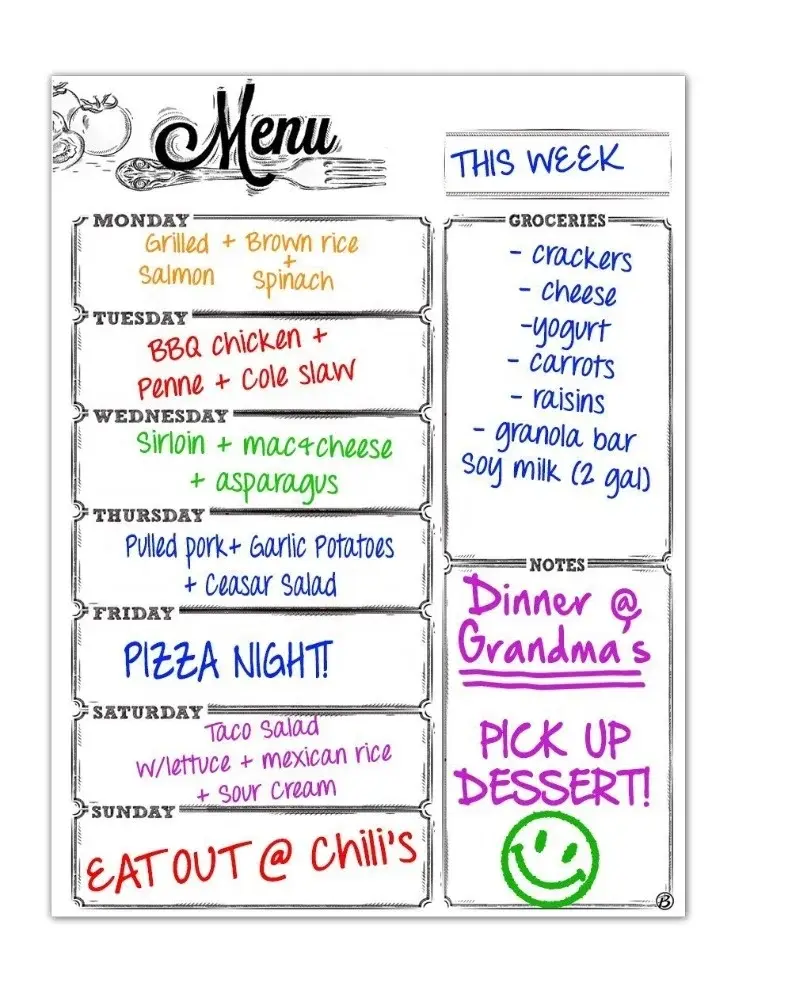 Menu
THIS WEEK
MONDAY
Grilled + Brown rice
+
Salmon spinach
TUESDAY
BBQ chicken +
Penne + Cole slaw
WEDNESDAY
Sirloin + mac&cheese
+ asparagus
THURSDAY
Pulled pork+ Garlic Potatoes
+ Ceasar Salad
FRIDAY
PIZZA NIGHT!
SATURDAY
Taco Salad
w/lettuce + mexican rice
+ sour cream
SUNDAY
EAT OUT @ Chili's
GROCERIES
- crackers
- cheese
-yogurt
- carrots
- raisins
- granola bar
soy milk (2 gal)
NOTES
Dinner @
Grandma's
PICK UP
DESSERT!
B